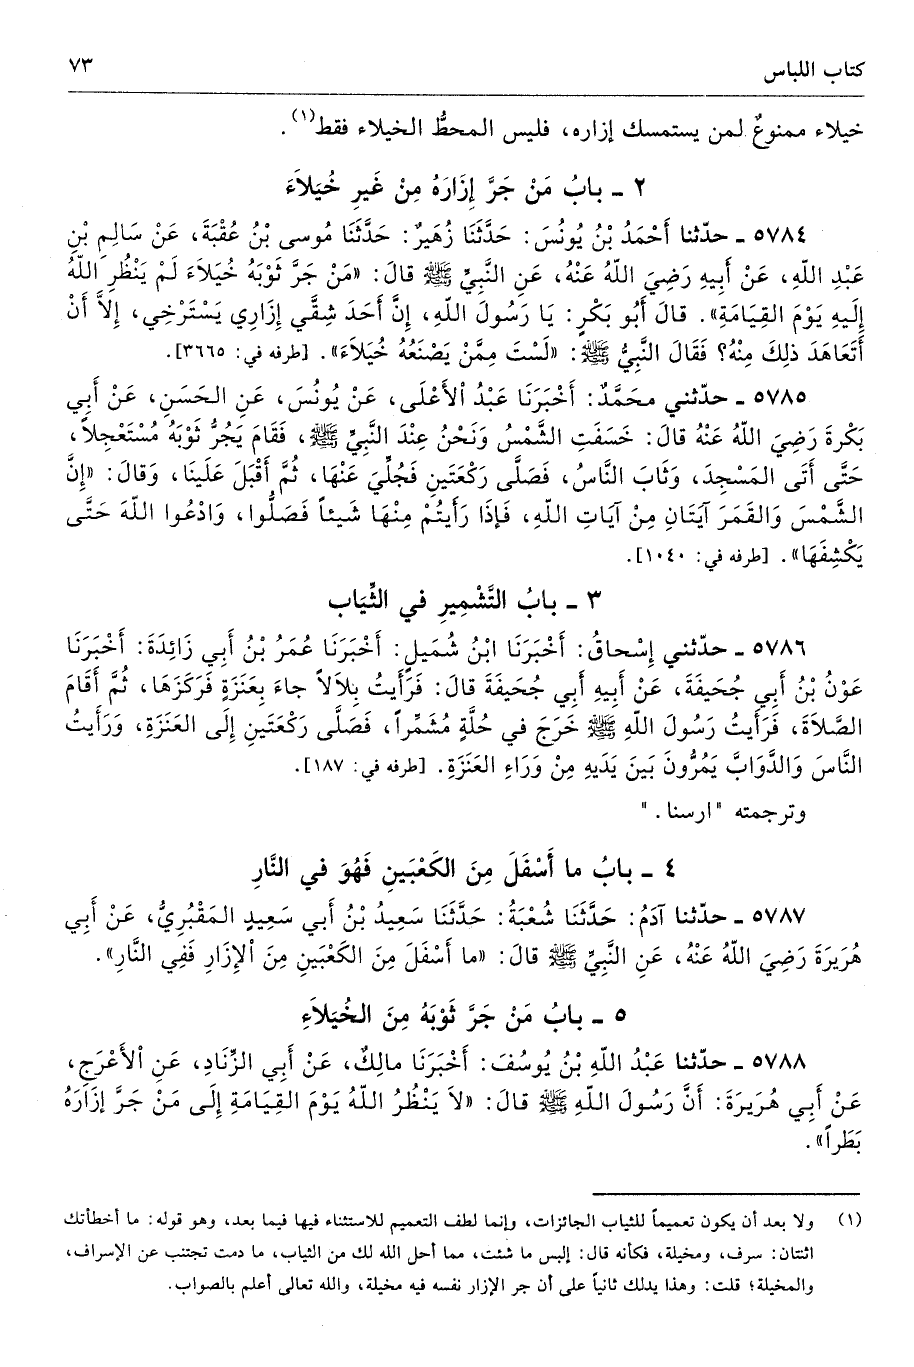 كتاب اللباس ٧٣
خيلاء ممنوعٌ لمن يستمسك إزاره، فليس المحطُّ الخيلاء فقط(١).
٢ ـ بابُ مَنْ جَرَّ إِزَارَهُ مِنْ غَيرِ خُيَلاَءَ
٥٧٨٤ ـ حدّثنا أَحْمَدُ بْنُ يُونُسَ: حَدَّثَنَا زُهَيرٌ: حَدَّثَنَا مُوسى بْنُ عُقْبَةَ، عَنْ سَالِمِ بْنِ
عَبْدِ اللّهِ، عَنْ أَبِيهِ رَضِيَ اللّهُ عَنْهُ، عَنِ النَّبِيِّ ﷺ قالَ: «مَنْ جَرَّ ثَوْبَهُ خُيَلاَءَ لَمْ يَنْظُرِ اللّهُ
إِلَيهِ يَوْمَ القِيَامَةِ». قالَ أَبُو بَكْرٍ: يَا رَسُولَ اللّهِ، إِنَّ أَحَدَ شِقَّي إِزَارِي يَسْتَرْخِي، إِلاَّ أَنْ
أَتَعَاهَدَ ذلِكَ مِنْهُ؟ فَقَالَ النَّبِيُّ ﷺ: «لَسْتَ مِمَّنْ يَصْنَعُهُ خُيَلاَءَ». [طرفه في: ٣٦٦٥].
٥٧٨٥ ـ حدّثني محَمَّدٌ: أَخْبَرَنَا عَبْدُ الأَعْلَى، عَنْ يُونُسَ، عَنِ الحَسَنِ، عَنْ أَبِي
بَكْرةَ رَضِيَ اللّهُ عَنْهُ قالَ: خَسَفَتِ الشَّمْسُ وَنَحْنُ عِنْدَ النَّبِيِّ ﷺ، فَقَامَ يَجُرُّ ثَوْبَهُ مُسْتَعْجِلاً،
حَتَّى أَتَى المَسْجِدَ، وَثَابَ النَّاسُ، فَصَلَّى رَكْعَتَينِ فَجُلِّيَ عَنْهَا، ثُمَّ أَقْبَلَ عَلَينَا، وَقالَ: «إِنَّ
الشَّمْسَ وَالقَمَرَ آيَتَانِ مِنْ آيَاتِ اللّهِ، فَإِذَا رَأَيتُمْ مِنْهَا شَيئاً فَصَلُّوا، وَادْعُوا اللّهَ حَتَّى
يَكْشِفَهَا». [طرفه في: ١٠٤٠].
٣ ـ بابُ التَّشْمِيرِ في الثِّيَاب
٥٧٨٦ ـ حدّثني إِسْحاقُ: أَخْبَرَنَا ابْنُ شُمَيلٍ: أَخْبَرَنَا عُمَرُ بْنُ أَبِي زَائِدَةَ: أَخْبَرَنَا
عَوْنُ بْنُ أَبِي جُحَيفَةَ، عَنْ أَبِيهِ أَبِي جُحَيفَةَ قالَ: فَرَأَيتُ بِلاَلاً جاءَ بِعَنَزَةٍ فَرَكَزَهَا، ثُمَّ أَقَامَ
الصَّلاَةَ، فَرَأَيتُ رَسُولَ اللّهِ ﷺ خَرَجَ في حُلَّةٍ مُشَمِّراً، فَصَلَّى رَكْعَتَينِ إِلَى العَنَزَةِ، وَرَأَيتُ
النَّاسَ وَالدَّوَابَّ يَمُرُّونَ بَينَ يَدَيهِ مِنْ وَرَاءِ العَنَزَةِ. [طرفه في: ١٨٧].
وترجمته "ارسنا."
٤ ـ بابُ ما أَسْفَلَ مِنَ الكَعْبَينِ فَهُوَ في النَّارِ
٥٧٨٧ ـ حدّثنا آدَمُ: حَدَّثَنَا شُعْبَةُ: حَدَّثَنَا سَعِيدُ بْنُ أَبي سَعِيدٍ المَقْبُرِيُّ، عَنْ أَبِي
هُرَيرَةَ رَضِيَ اللّهُ عَنْهُ، عَنِ النَّبِيِّ ﷺ قالَ: «ما أَسْفَلَ مِنَ الكَعْبَينِ مِنَ الإِزَارِ فَفِي النَّارِ».
٥ ـ بابُ مَنْ جَرَّ ثَوْبَهُ مِنَ الخُيَلاَءِ
٥٧٨٨ ـ حدّثنا عَبْدُ اللّهِ بْنُ يُوسُفَ: أَخْبَرَنَا مالِكٌ، عَنْ أَبِي الزِّنَادِ، عَنِ الأَعْرَجِ،
عَنْ أَبِي هُرَيرَةَ: أَنَّ رَسُولَ اللّهِ ﷺ قالَ: «لاَ يَنْظُرُ اللّهُ يَوْمَ القِيَامَةِ إِلَى مَنْ جَرَّ إِزَارَهُ
بَطَراً».
(١) ولا بعد أن يكون تعميماً للثياب الجائزات، وإنما لطف التعميم للاستثناء فيها فيما بعد، وهو قوله: ما أخطأتك
اثنتان: سرف، ومخيلة، فكأنه قال: إلبس ما شئت، مما أحل الله لك من الثياب، ما دمت تجتنب عن الإسراف،
والمخيلة؛ قلت: وهذا يدلك ثانياً على أن جر الإزار نفسه فيه مخيلة، والله تعالى أعلم بالصواب.